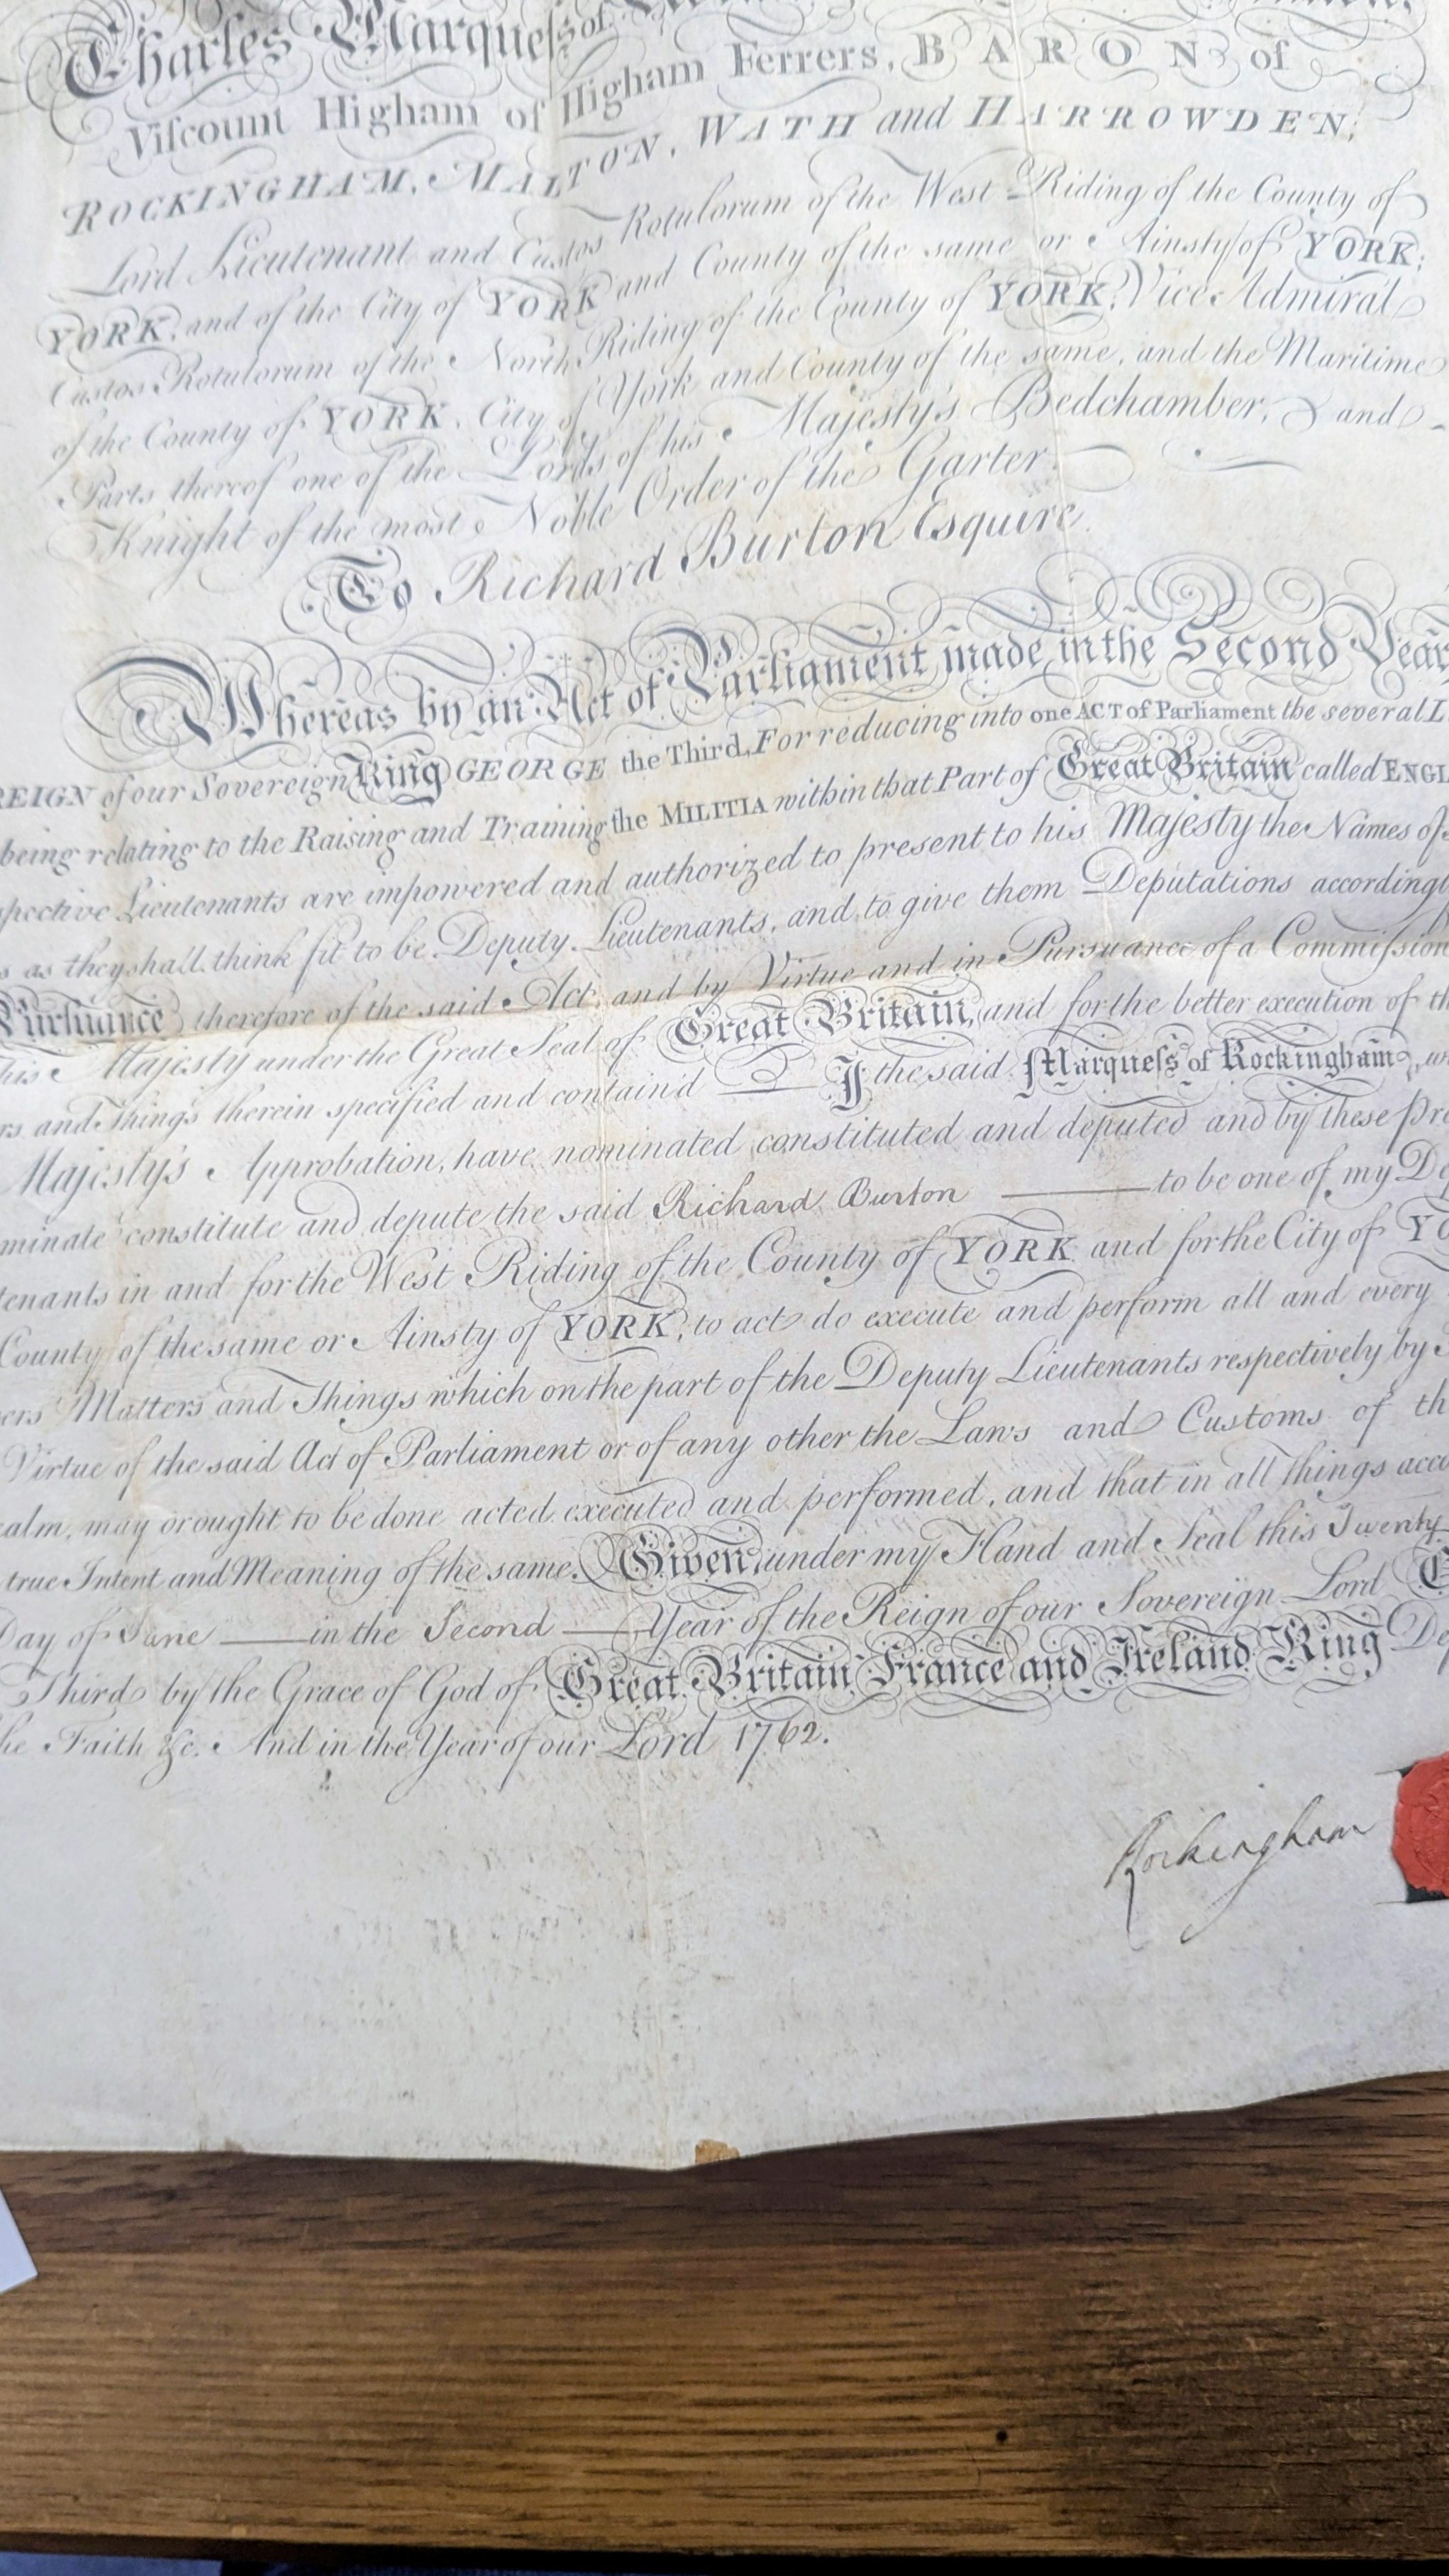 Charles Marquess of
Viscount Higham of Higham Ferrers, BARON of
ROCKINGHAM, MALTON, WATH and HARROWDEN,
Lord Lieutenant and Custos Rotulorum of the West Riding of the County of
YORK, and of the City of YORK and County of the same or Ainsty of YORK;
Custos Rotulorum of the North Riding of the County of YORK, Vice Admiral
of the County of YORK, City of York and County of the same, and the Maritime
Parts thereof one of the Lords of his Majesty's Bedchamber, and
Knight of the most Noble Order of the Garter.
To Richard Burton Esquire
Whereas by an Act of Parliament made in the Second Year
REIGN of our Sovereign King GEORGE the Third, For reducing into one ACT of Parliament the several L
being relating to the Raising and Training the MILITIA within that Part of Great Britain called ENGL
spective Lieutenants are impowered and authorized to present to his Majesty the Names of
s as they shall think fit to be Deputy Lieutenants, and to give them Deputations accordingl
Pursuance therefore of the said Act, and by Virtue and in Pursuance of a Commission
his Majesty under the Great Seal of Great Britain, and for the better execution of th
rs and Things therein specified and contain'd I the said Marquess of Rockingham, w
Majesty's Approbation, have nominated constituted and deputed and by these Pre
minate constitute and depute the said Richard Burton to be one of my De
tenants in and for the West Riding of the County of YORK and for the City of YO
County of the same or Ainsty of YORK, to act do execute and perform all and every
ers Matters and Things which on the part of the Deputy Lieutenants respectively by
Virtue of the said Act of Parliament or of any other the Laws and Customs of th
ealm, may or ought to be done acted executed and performed, and that in all things acco
true Intent and Meaning of the same. Given under my Hand and Seal this Twenty
Day of June in the Second Year of the Reign of our Sovereign Lord G
Third by the Grace of God of Great Britain France and Ireland King De
he Faith &c. And in the Year of our Lord 1762.
Rockingham